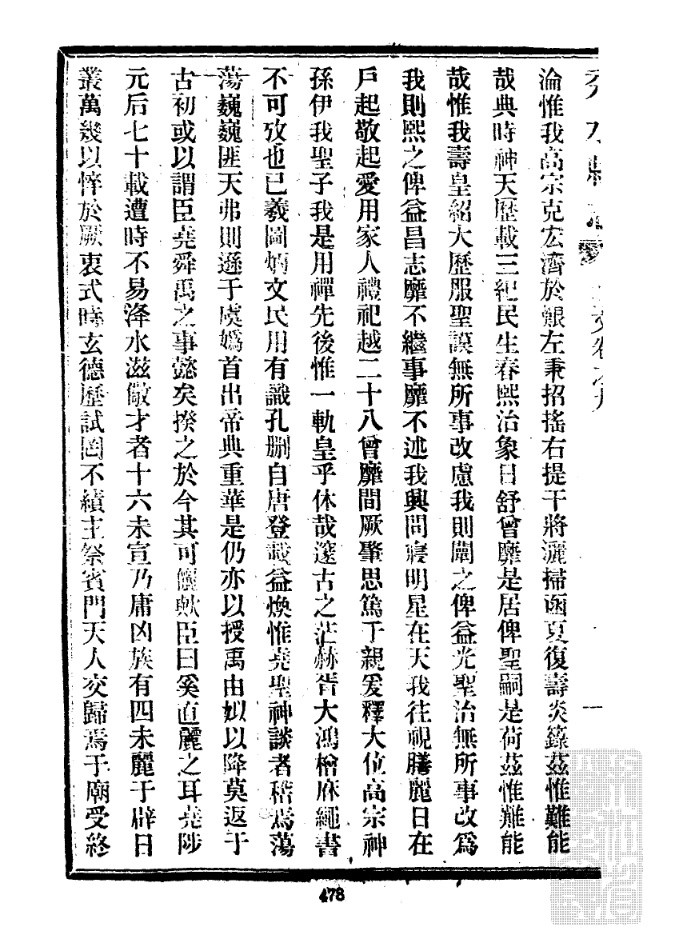 淪惟我高宗克宏濟於艱左秉招搖右提干將灑掃函夏復壽炎籙茲惟難能
哉典時神天歷載三紀民生春熙治象日舒曾靡是居俾聖嗣是荷茲惟難能
哉惟我壽皇紹大歷服聖謨無所事改慮我則闡之俾益光聖治無所事改爲
我則熙之俾益昌志靡不繼事靡不述我興問寢明星在天我往視膳麗日在
戶起敬起愛用家人禮祀越二十八曾靡間厥肇思篤于親爰釋大位高宗神
孫伊我聖子我是用禪先後惟一軌皇乎休哉邃古之茫赫胥大鴻檜麻繩書
不可攷也已羲圖炳文民用有識孔刪自唐登載益煥惟堯聖神談者稽焉蕩
蕩巍巍匪天弗則遜于虞嬀首出帝典重華是仍亦以授禹由姒以降莫返于
古初或以謂臣堯舜禹之事懿矣揆之於今其可儷歟臣曰奚直麗之耳堯陟
元后七十載遭時不易洚水滋儆才者十六未宣乃庸凶族有四未麗于辟日
叢萬幾以悴於厥衷式時玄德歷試罔不績主祭賓門天人交歸焉于廟受終
478